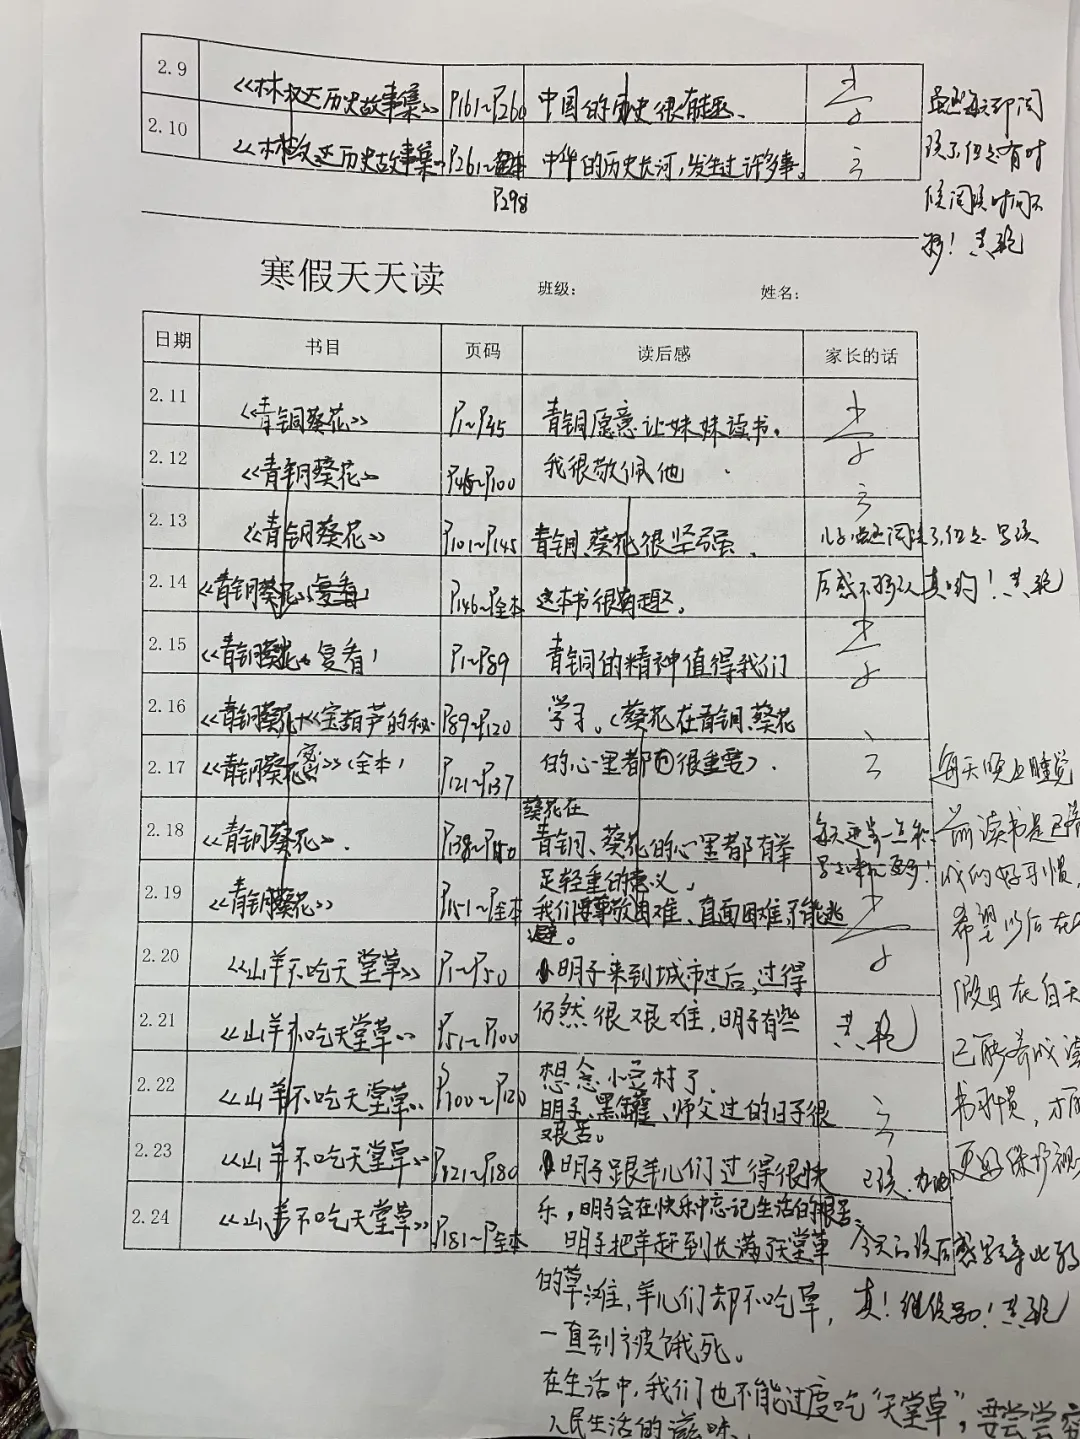 2.9 《林汉达历史故事集》 P161~P260 中国的历史很有趣。
虽然每天都阅
2.10 《林汉达历史故事集》 P261~全本 中华的历史长河，发生过许多事。
P298
读了，但是有时
候阅读时间不
够！
寒假天天读 班级： 姓名：
日期 书目 页码 读后感 家长的话
2.11 《青铜葵花》 P1~P45 青铜愿意让妹妹读书。
2.12 《青铜葵花》 P45~P100 我很敬佩他
2.13 《青铜葵花》 P101~P145 青铜、葵花很坚强。 儿子虽然阅读了，但是写读
2.14 《青铜葵花》（复看） P146~P全本 这本书很有趣。 后感不够认真哟！
2.15 《青铜葵花》（复看） P1~P89 青铜的精神值得我们
2.16 《青铜葵花》+《宝葫芦的秘 P89~P120 学习。（葵花在青铜、葵花
2.17 《青铜葵花 密》（全本） P121~P137 的心里都很重要）.
每天晚上睡觉
葵花在
2.18 《青铜葵花》. P138~P150 青铜、葵花的心里都有举
每天进步一点
前读书是已养
足轻重的意义。
成的好习惯，
2.19 《青铜葵花》 P151~P全本 我们要尊敬困难、直面困难不能逃
避。
希望以后在
2.20 《山羊不吃天堂草》 P1~P50 明子来到城市过后，过得
假日在白天
2.21 《山羊不吃天堂草》 P51~P100 仍然很艰难，明子有些
已能养成读
2.22 《山羊不吃天堂草》 P100~P120 想念小豆村了.
明子、黑罐、师父过的日子很
艰苦。
书习惯，才能
2.23 《山羊不吃天堂草》 P121~P180 明子跟羊儿们过得很快 已读.
更好保护视
2.24 《山羊不吃天堂草》 P181~P全本 乐，明子会在快乐中忘记生活的艰苦。
明子把羊赶到长满了天堂草 今天的读后感写得比较
的草滩，羊儿们却不吃草， 真！继续努力！
一直到被饿死。
在生活中，我们也不能过度吃“天堂草”，要尝尝穷
人民生活的滋味。